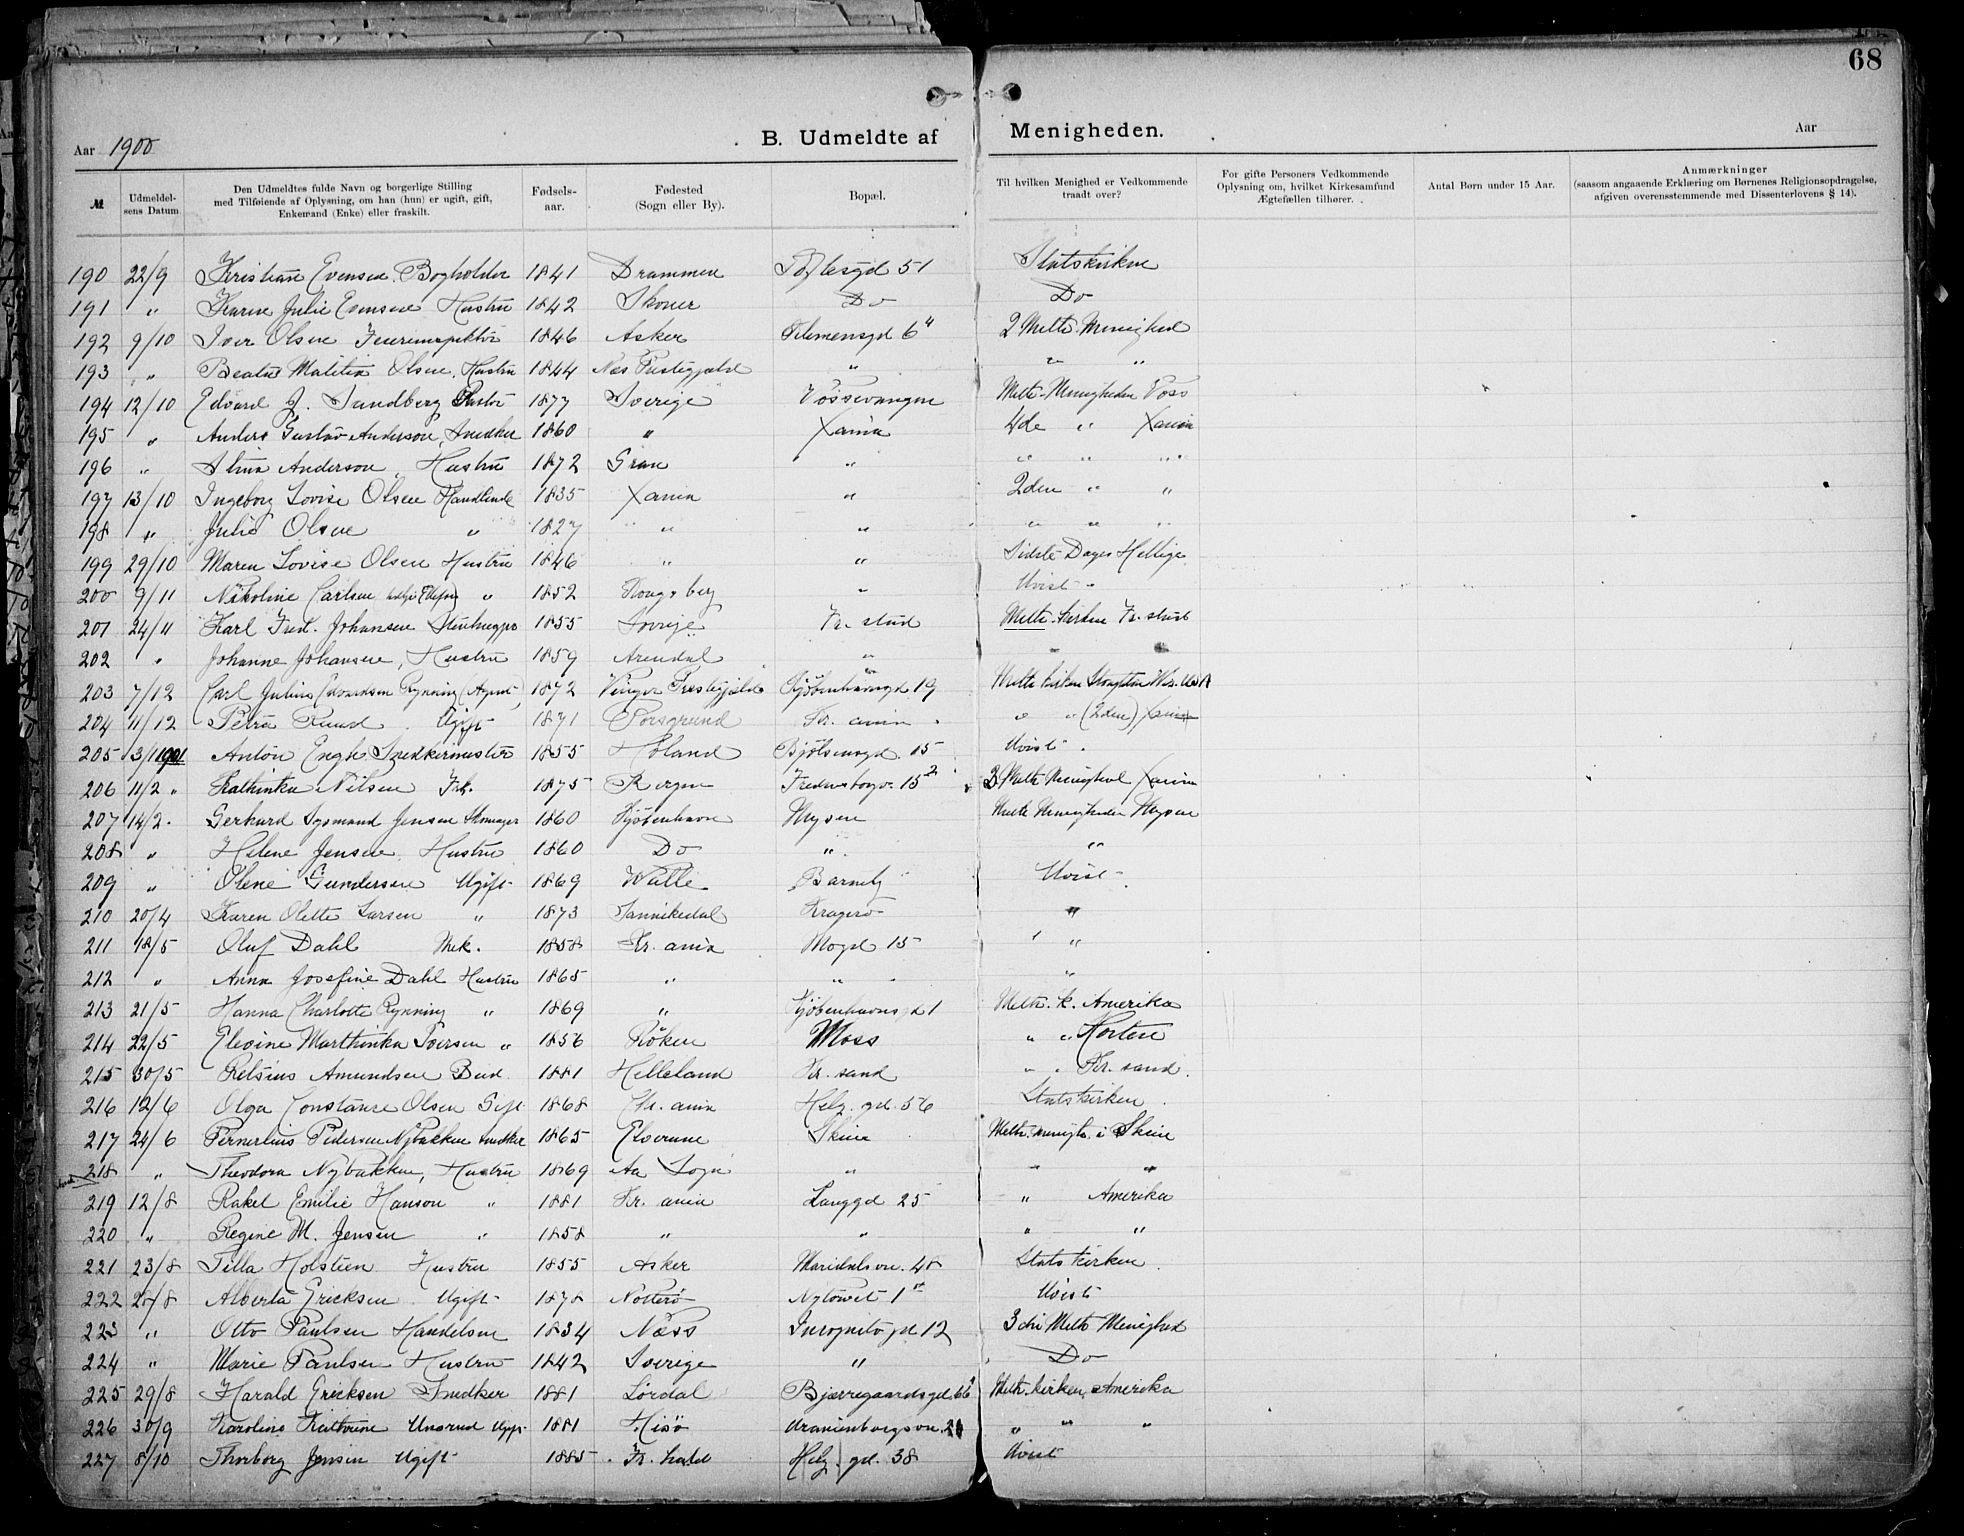 68
Aar 1900 B. Udmeldte af Menigheden. Aar
№ Udmeldelsens Datum. Den Udmeldtes fulde Navn og borgerlige Stilling med Tilføiende af Oplysning, om han (hun) er ugift, gift, Enkemand (Enke) eller fraskilt. Fødselsaar. Fødested (Sogn eller By). Bopæl. Til hvilken Menighed er Vedkommende traadt over? For gifte Personers Vedkommende Oplysning om, hvilket Kirkesamfund Ægtefællen tilhører. Antal Børn under 15 Aar. Anmærkninger (saasom angaaende Erklæring om Børnenes Religionsopdragelse, afgiven overensstemmende med Dissenterlovens § 14).
190 22/9 Kristian Evensen Bogholder 1841 Drammen Toftesgd 51 Statskirken
191 " Karen Julie Evensen Hustru 1842 Skoger Do Do
192 9/10 Iver Olsen 1846 Asker 6 2 Meth. Menighed
193 " Olsen, Hustru 1844 Nes Prestegjæld " " "
194 12/10 Edvard J. Sundberg Pastor 1877 Sverige Vossevangen Meth. Menigheden Voss
195 " Anders Gustav Anderson, Snedker 1860 " Xania 4de " Xania
196 " Anderson, Hustru 1872 Gran " " " "
197 13/10 Ingeborg Lovise Olsen Handlende 1835 Xania " 2den " "
198 " Julie Olsen " 1827 " " " " "
199 29/10 Maren Lovise Olsen Hustru 1846 " " Sidste Dages Hellige
200 9/11 Nikoline Carlsen " 1852 Kongsberg " Uvist
201 24/11 Karl Fred. Johansen 1855 Sverige Fr. stad Meth. Kirken Fr. stad
202 " Johanne Johansen, Hustru 1859 Arendal " " "
203 7/12 Carl Julius Edvardsen Rynning (Agent) 1872 Vinger Prestegjæld Kjøbenhavngd 19 Meth kirken Stoughton Wis. USA
204 11/12 Petra Ruud Ugift 1871 Porsgrund Kr. ania " " (2den) Xania
205 3/1 1901 Anton Engh Snedkermester 1855 Høland Bjølsensgd. 15 Uvist
206 11/2 " Kathinka Nilsen Frk. 1875 Bergen Fredensborgv. 15 2 3 Meth Menighed Xania
207 14/2 Gerhard Sigmund Jensen 1860 Kjøbenhavn Mysen Meth Menigheden Mysen
208 " Helene Jensen, Hustru 1860 Do " "
209 " Olene Gundersen Ugift 1869 Barneby Uvist
210 20/4 Karen Olette Larsen " 1873 Sannikedal Kragerø "
211 18/5 Oluf Dahl Mek. 1858 Kr. ania Mogd 15 "
212 " Anna Josefine Dahl Hustru 1865 " " "
213 21/5 Hanna Charlotte Rynning " 1869 " Kjøbenhavnsgd 1 Meth. k. Amerika
214 22/5 Elevine Marthinka Iversen " 1856 Røken Moss " " Horten
215 30/5 Amundsen Bud 1881 Helleland Kr. sand " " Kr. sand
216 12/6 Olga Constanse Olsen Gift 1868 Chr. ania Helg. gd. 56 Statskirken
217 24/6 Pedersen Nybakken Snedker 1865 Elverum Skien Meth. menigh. i Skien
218 " Theodora Nybakken, Hustru 1869 Aa Sogn " " "
219 12/8 Rakel Emilie Hanson " 1881 Kr. ania Langgd 25 " Amerika
220 " Regine M. Jensen " 1858 " " " "
221 23/8 Tilla Holstien Hustru 1855 Asker Maridalsvn. 48 Statskirken
222 28/8 Alberta Ericksen Ugift 1878 Nøtterø 1 Uvist
223 " Otto Paulsen Handelsm 1834 Næss Incognitogd 12 3die Meth Menighed
224 " Marie Paulsen Hustru 1842 Sverige " Do
225 29/8 Harald Ericksen Snedker 1881 Lørdal Bjerregaardsgd 66 Meth. kirken, Amerika
226 30/9 Karoline Unsrud Ugift 1881 Hisø Uranienborgsvn. " " "
227 8/10 Thorborg Jensen Ugift 1885 Fr. hald Helg. gd. 38 Uvist